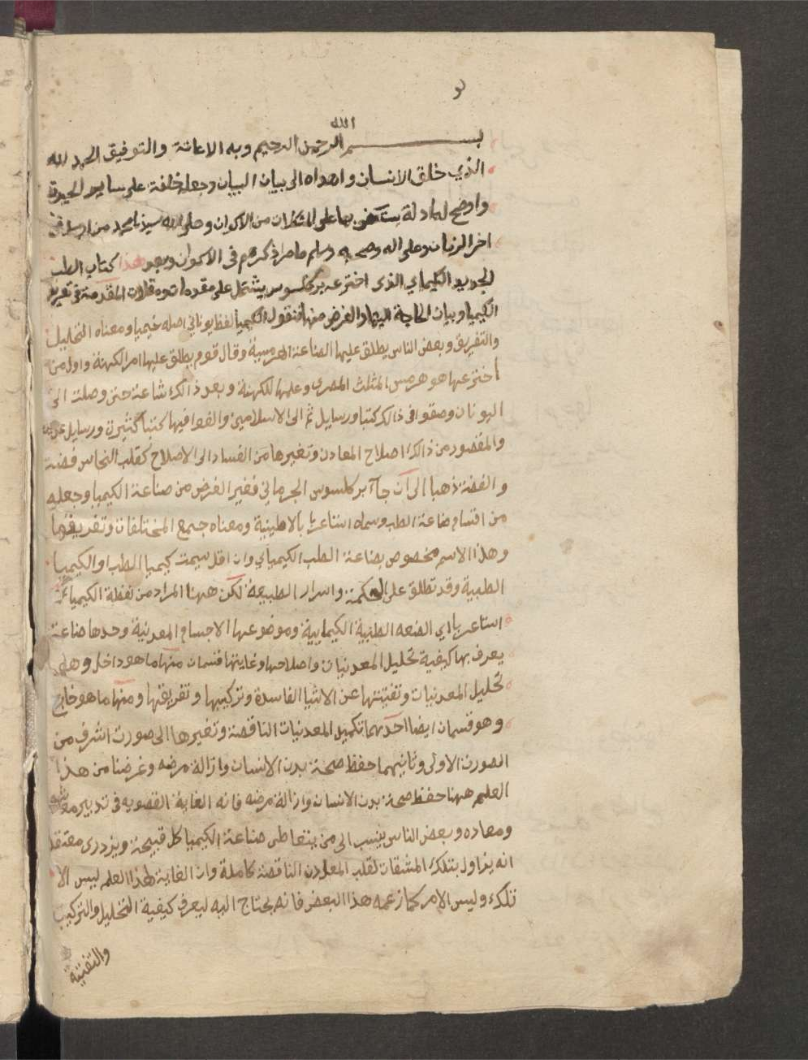 بسم الله الرحمن الرحيم وبه الاعانة والتوفيق الحمد لله
الذي خلق الانسان واهداه الى بيان البيان وجعله خلفة على ساير
واوضح له ادلة على من الاكوان وصلى الله سيدنا محمد من ارسله في
اخر الزمان وعلى اله وصحبه وسلم في الاكوان وبعد هذا كتاب الطب
الجديد الكيمياي الذي اخترعه بركلسوس يشتمل على مقدمة ومقالات المقدمة في تعريف
الكيميا وبيان الحاجة اليها والغرض منها فنقول الكيميا لفظ يوناني اصله خيميا ومعناه التحليل
والتفريق وبعض الناس يطلق عليها الصناعة الهرمسية وقال قوم يطلق عليها امر الكهنة واول من
اخترعها هو هرمس المثلث المصري وعلمها للكهنة وبعد ذالك شاعة حتى وصلت الى
اليونان وصنفو افي ذالك كتبا ورسايل ثم الى الاسلاميين والفوا فيها كتبا كثيرة ورسايل
والمقصور من ذالك اصلاح المعادن وتغيرها من الفساد الى الاصلاح كقلب النحاس فضة
والفضة ذهبا الى ان جاآ بركلسوس الجرماني فغير الغرض من صناعة الكيميا وجعله
من اقسام صناعة الطب وسماه اسباغريا بالاطينية ومعناه جمع المختلفات وتفريقها
وهذا الاسم مخصوص بصناعة الطب الكيمياي وان اقل سيمت كيميا الطب والكيميا
الطبية وقد تطلق على الحكمة واسرار الطبيعة لكن ههنا المراد من لفظة الكيميا
اي الصنعه الطبية الكيمايية وموضوعها الاجسام المعدنية وحدها صناعة
يعرف بها كيفية تحليل المعدنيات واصلاحها وغايتها قسمان منها ما هو داخل وهو
تحليل المعدنيات وتفتيتها عن الاشيا الفاسدة وتركيبها وتفريقها ومنها ما هو خارج
وهو قسمان ايضا احدهما تكميل المعدنيات الناقصة وتغيرها الى صورت اشرف من
الصورت الاولى وثانيهما حفظ صحة بدن الانسان وازالة مرضه وغرضنا من هذا
العلم ههنا حفظ صحة بدن الانسان وازالة مرضه فانه الغاية القصويه في تدبير
ومعاده وبعض الناس ينسب الى من يتعاطى صناعة الكيميا كل قبيحة ويزدرى معتقدا
انه يزاول بتلك المشقات لقلب المعادن الناقصة كاملة وان الغاية لهذا العلم ليس الا
تلك وليس الامر كما زعمه هذا البعض فانه يحتاج اليه ليعرف كيفية التحليل والتركيب
والتفتية